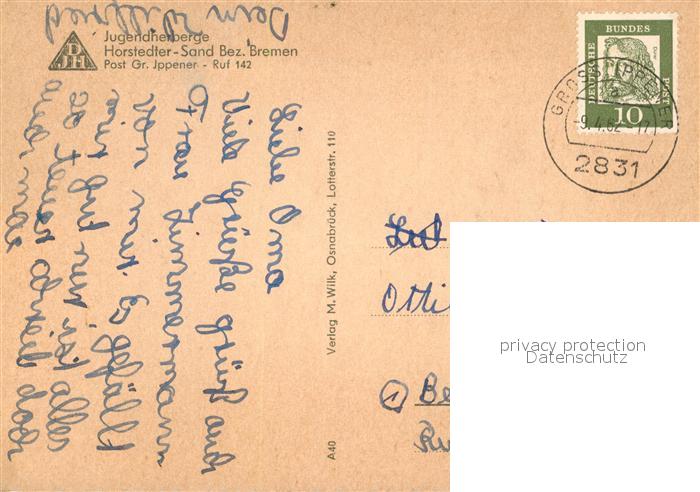 Jugendherberge
Horstedter-Sand Bez. Bremen
Post Gr. Jppener - Ruf 142
DJH
Liebe Oma
Viele Grüße grüß auch
Frau Zimmermann
von mir. Es gefällt
mir gut nur ist alles
so teuer schreib doch
auch mal
Dein Wilfried
Verlag M. Wilk, Osnabrück, Lotterstr. 110
A40
DEUTSCHE BUNDES POST
Dürer
10
GROSS IPPENER
-9.4.62-17
2831
Otti
1 Be
privacy protection
Datenschutz